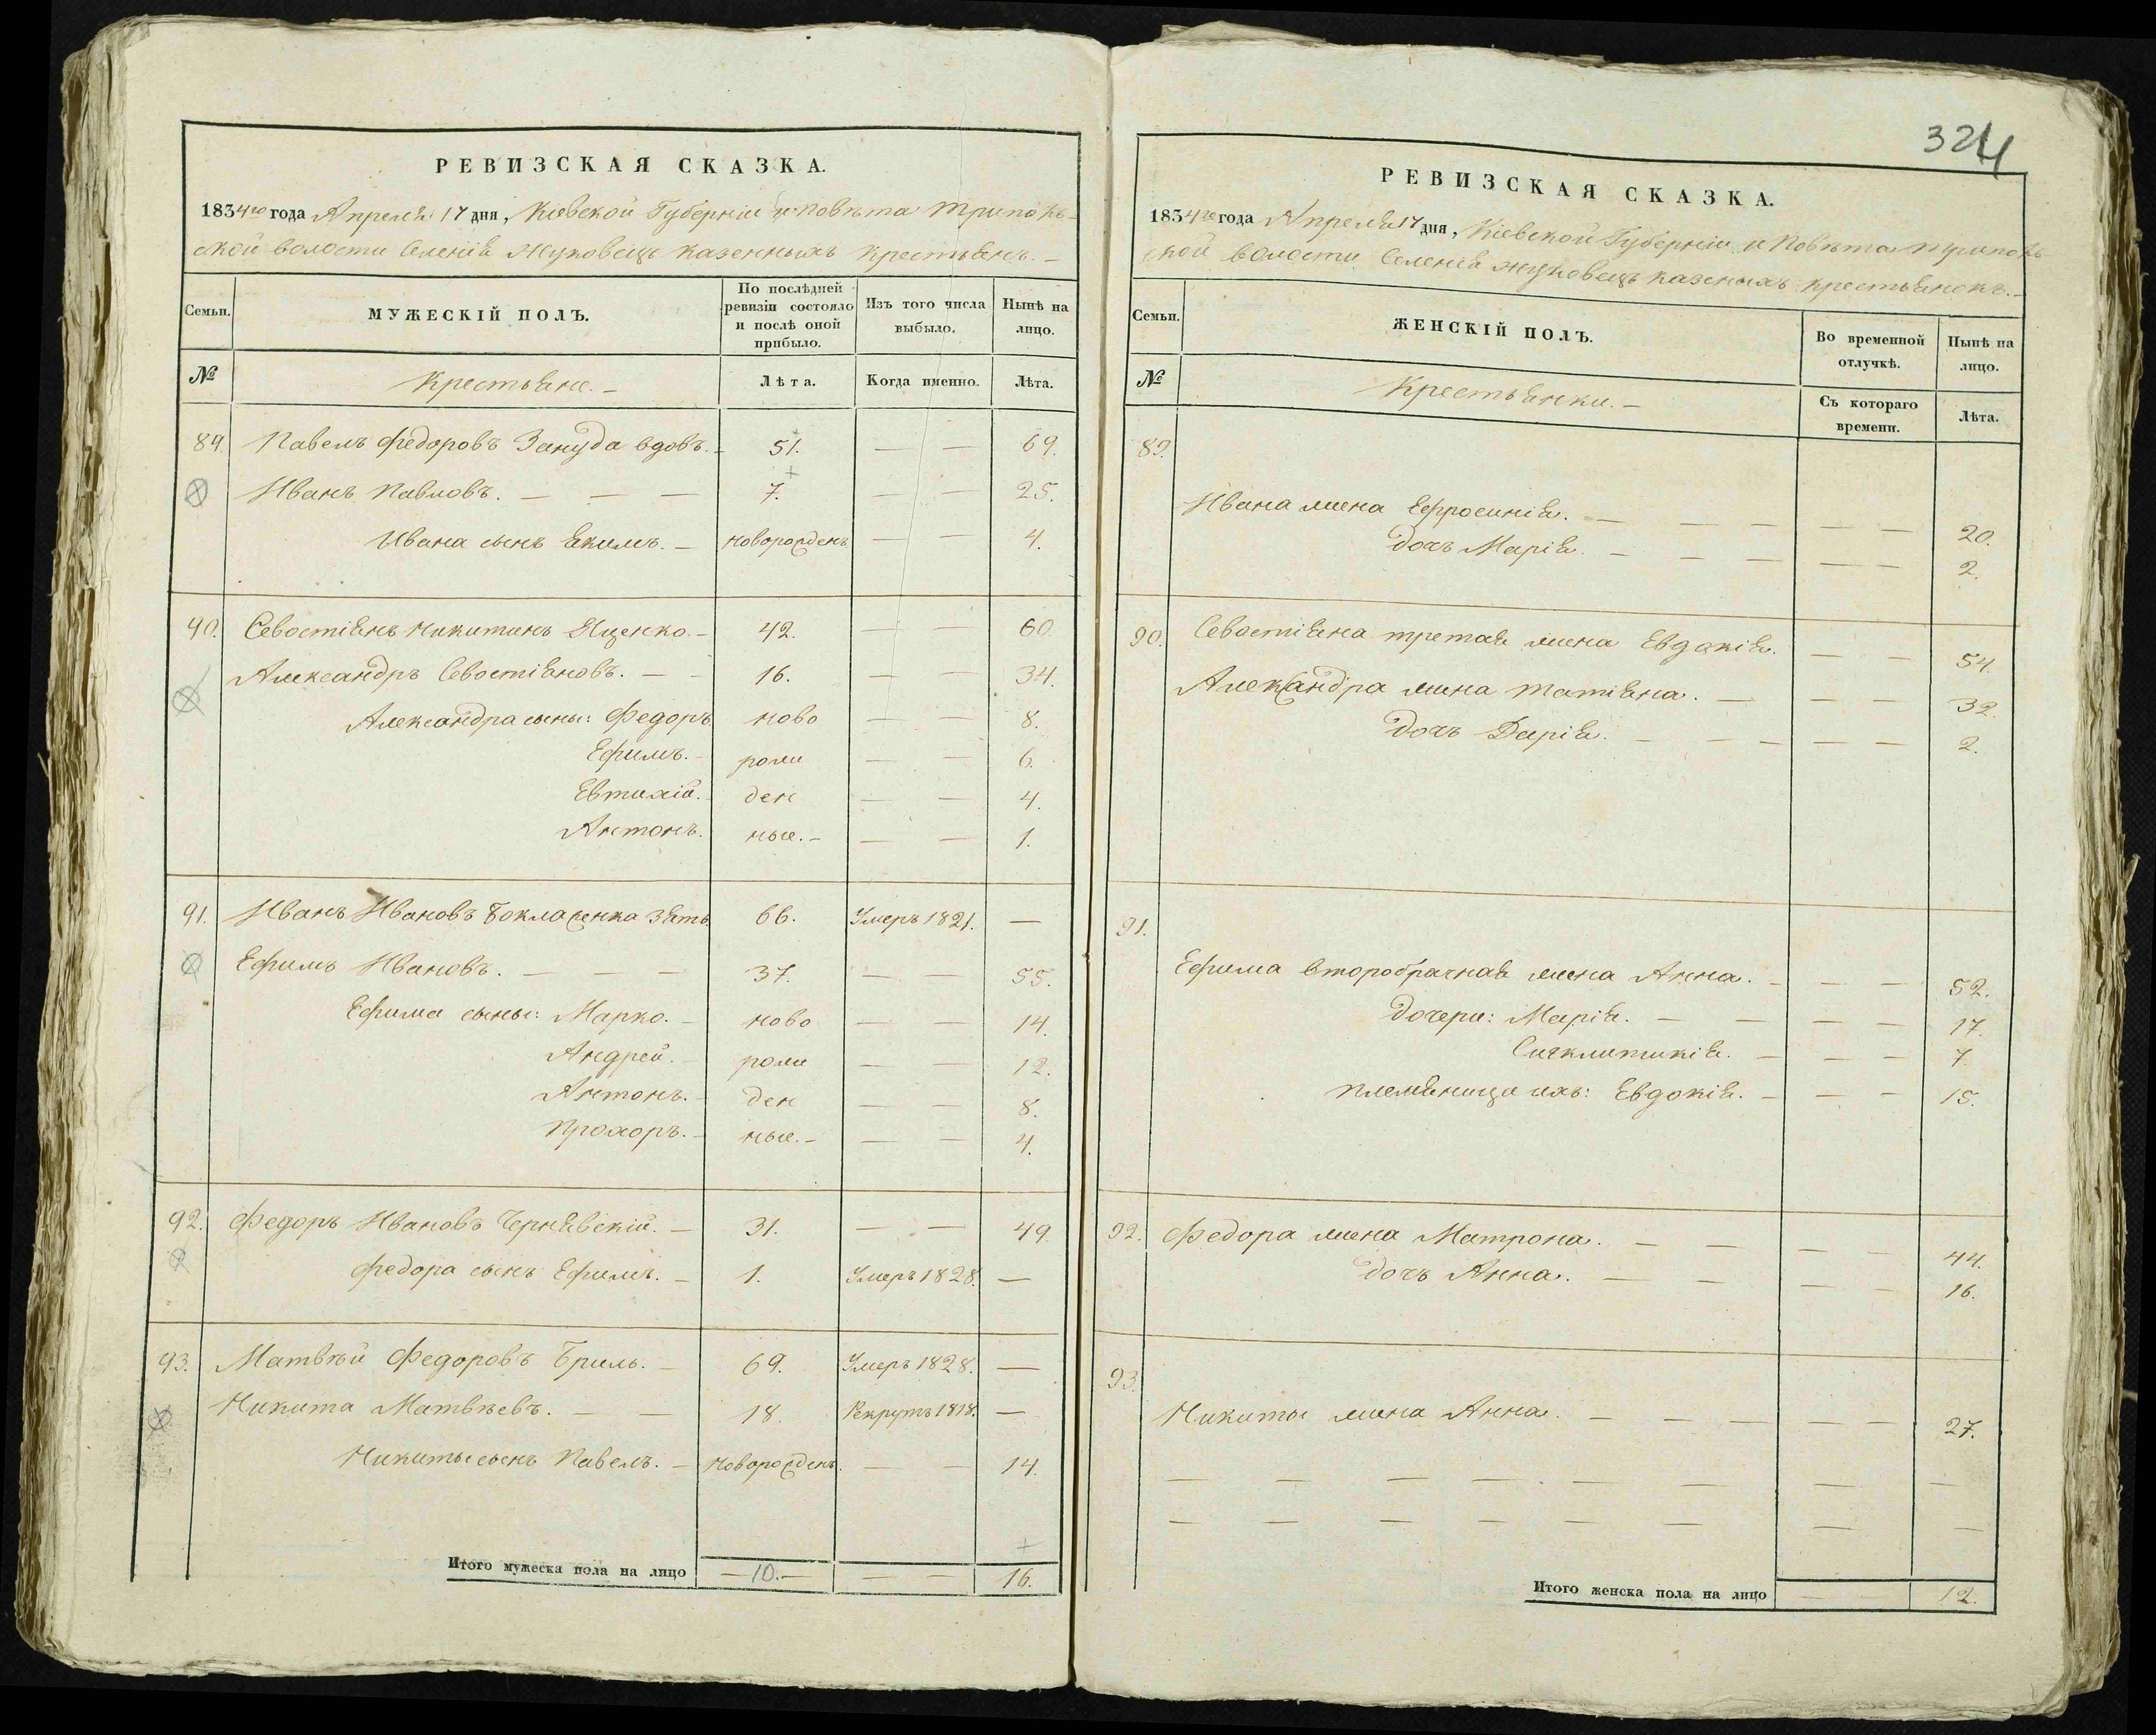 РЕВИЗСКАЯ СКАЗКА.
1834го года Апреля 17 дня, Кіевской Губерніи и Повѣта Трипол-
ской волости Селенія Жуковецъ казенныхъ крестьянъ.—
Семьи.
МУЖЕСКІЙ ПОЛЪ.
По послѣдней ревизіи состояло и послѣ оной прибыло.
Изъ того числа выбыло.
Нынѣ на лицо.
№
Крестьяне.—
Лѣта.
Когда именно.
Лѣта.
89. Павелъ Федоровъ Зануда вдовъ.— 51. — — 69.
Иванъ Павловъ. — — — 7. — — 25.
Ивана сынъ Якимъ. — новорожденъ — — 4.
90. Севостіянъ Никитинъ Яценко.— 42. — — 60.
Александръ Севостіяновъ. — — 16. — — 34.
Александра сыны: Федоръ ново — — 8.
Ефимъ.— рож — — 6.
Евтихій. ден — — 4.
Антонъ. ные.— — — 1.
91. Иванъ Ивановъ зять 66. Умеръ 1821. —
Ефимъ Ивановъ. — — — 37. — — 55.
Ефима сыны: Марко. — ново — — 14.
Андрей.— рож — — 12.
Антонъ.— ден — — 8.
Прохоръ.— ные.— — — 4.
92. Федоръ Ивановъ Чернявскій. — 31. — — 49.
Федора сынъ Ефимъ. — 1. Умеръ 1828. —
93. Матвѣй Федоровъ Бриль. — 69. Умеръ 1828. —
Никита Матвѣевъ. — — 18. Рекрутъ 1818. —
Никиты сынъ Павелъ. — новорожденъ. — — 14.
Итого мужеска пола на лицо —10.— — — 16.
324
РЕВИЗСКАЯ СКАЗКА.
1834го года Апреля 17 дня, Кіевской Губерніи и Повѣта Трипол-
ской волости Селенія Жуковецъ казеныхъ крестьянокъ.—
Семьи.
ЖЕНСКІЙ ПОЛЪ.
Во временной отлучкѣ.
Нынѣ на лицо.
№
Крестьянки.—
Съ котораго времени.
Лѣта.
89.
Ивана жена Ефросинія. — — — — — 20.
дочь Марія. — — — — — 2.
90. Севостіяна третая жена Евдокія. — — 54.
Александра жена Татіяна. — — — — 32.
дочь Дарія. — — — — — 2.
91.
Ефима второбрачная жена Анна. — — — 52.
дочери: Марія. — — — — 17.
Синклитикія. — — — 7.
племяница ихъ: Евдокія. — — — 15.
92. Федора жена Матрона. — — — — 44.
дочь Анна. — — — — 16.
93.
Никиты жена Анна. — — — — — 27.
Итого женска пола на лицо — — 12.